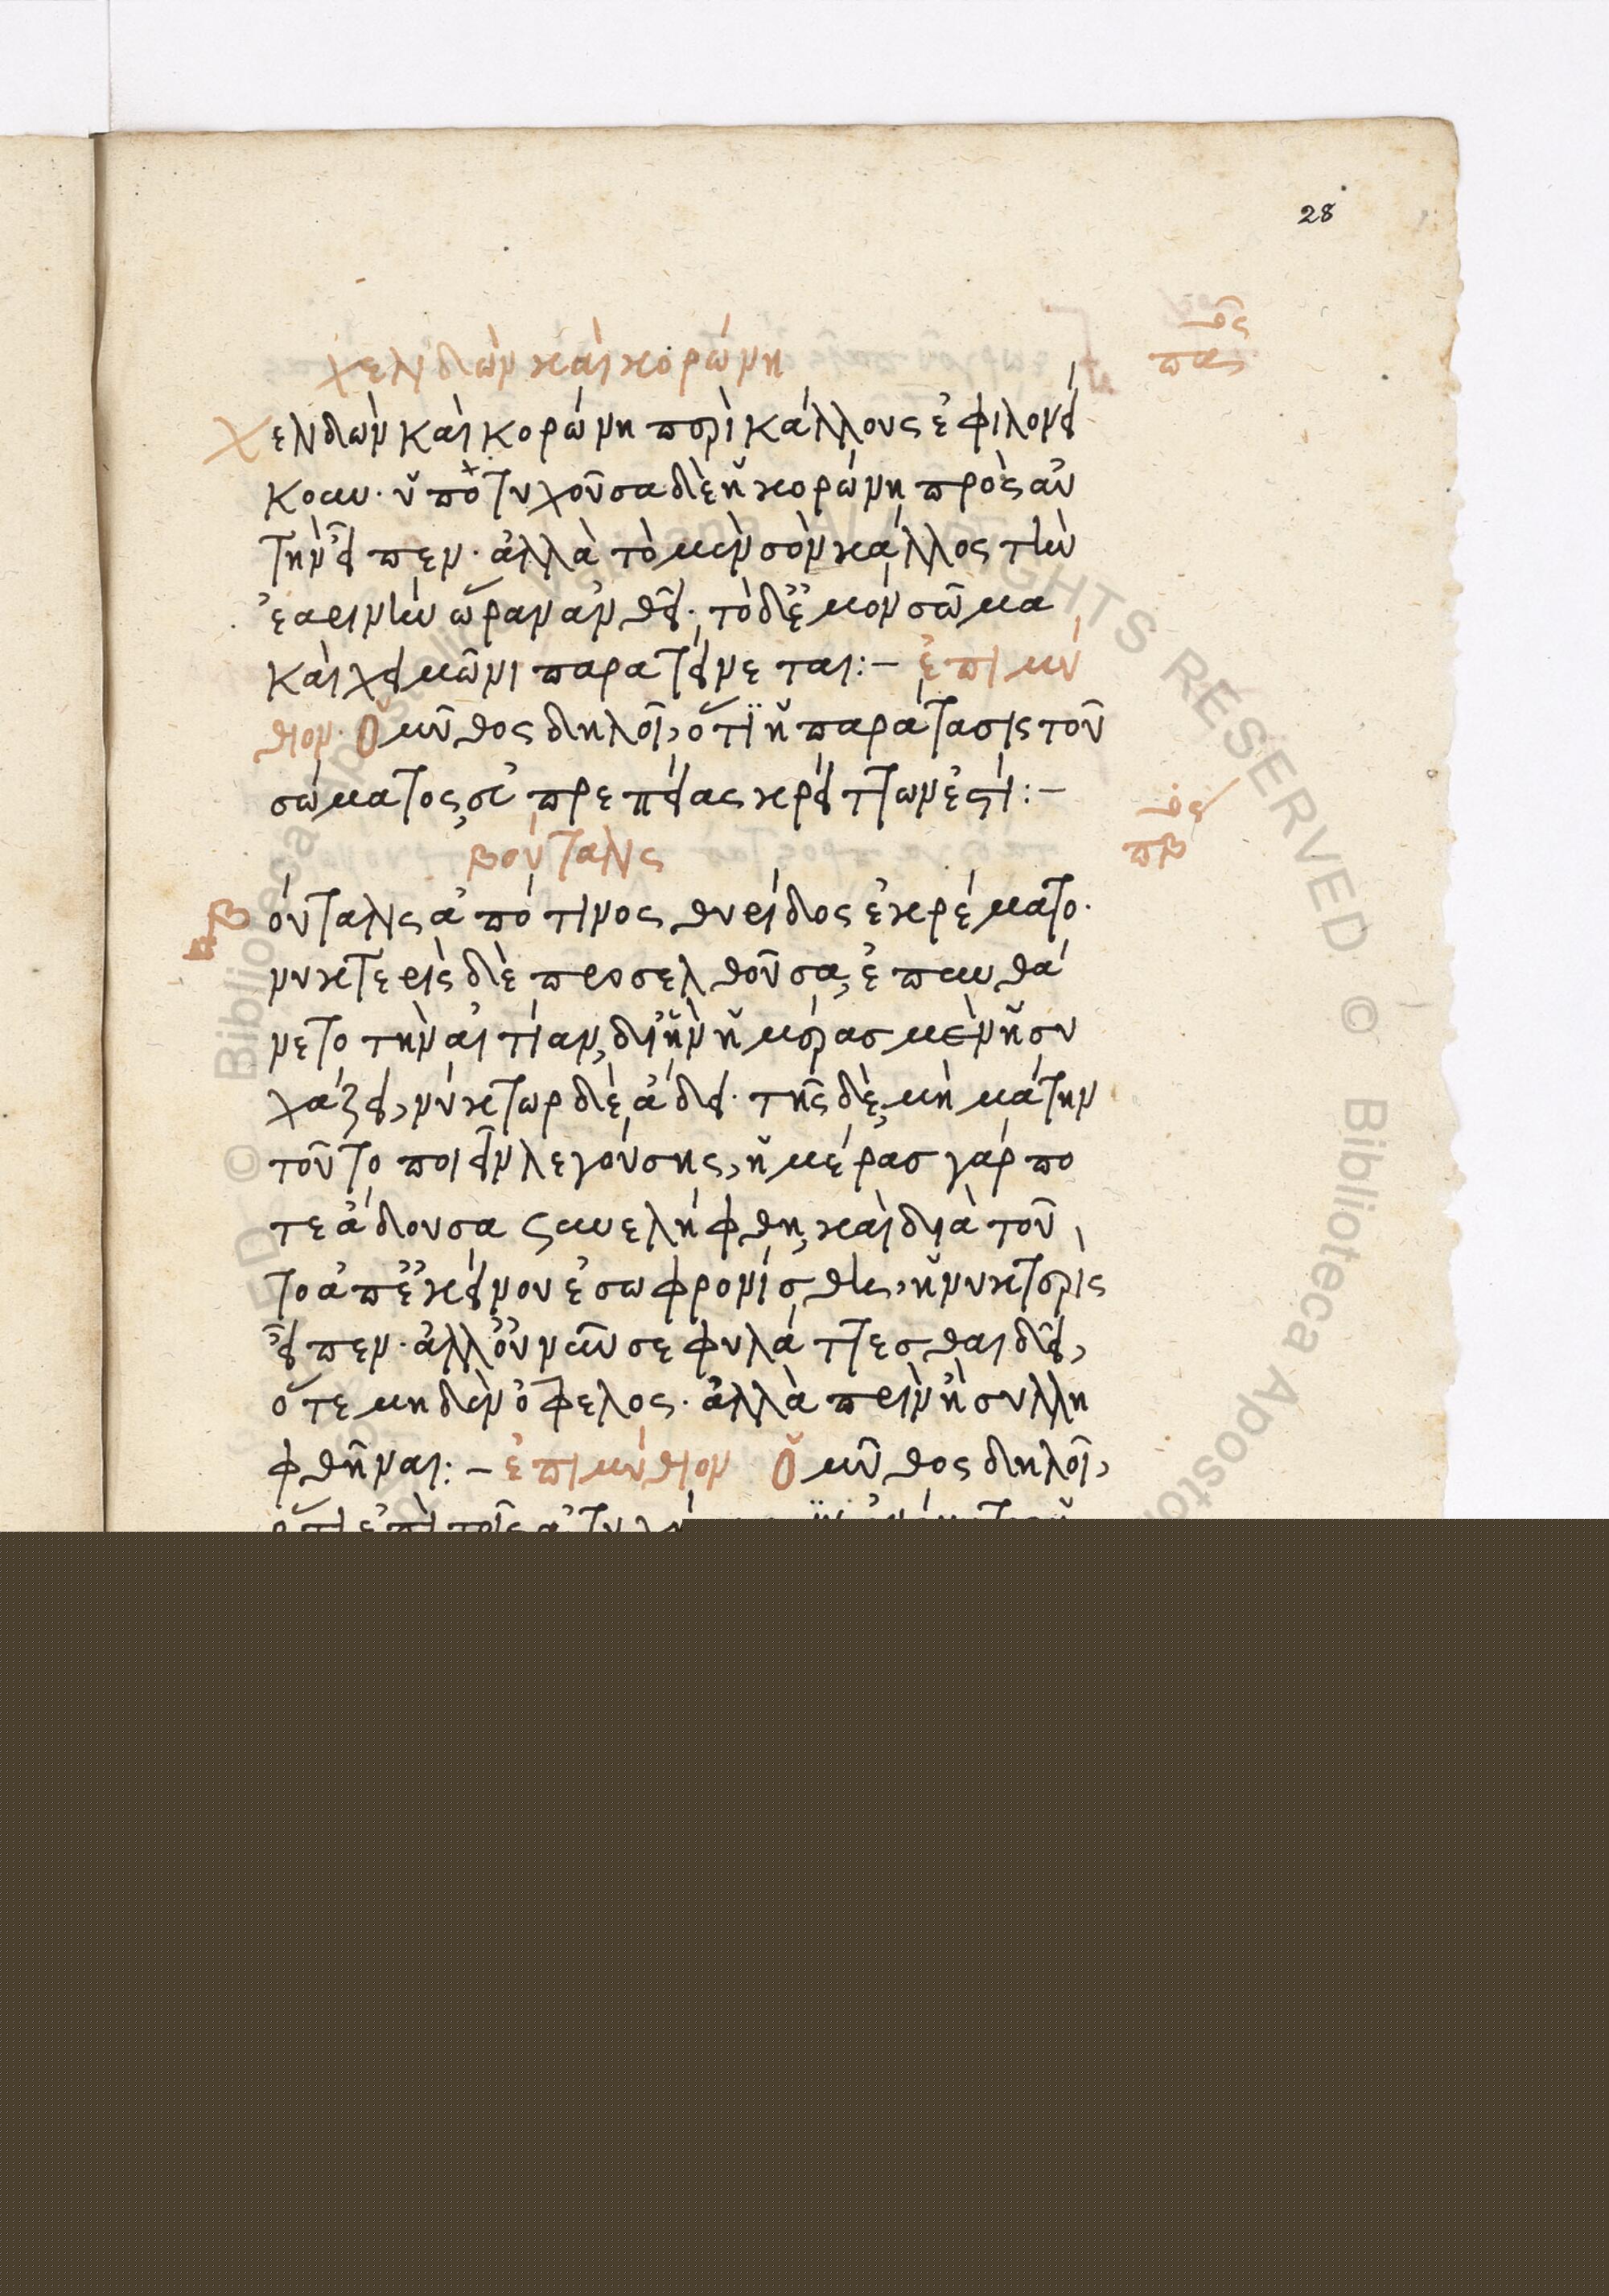 28
χελιδὼν καὶ κορώνη
πας
Χελιδὼν καὶ κορώνη περὶ κάλλους ἐφιλονεί
κουν· ὑποτυχοῦσα δὲ ἡ κορώνη πρὸς αὐ
τὴν εἶπεν· ἀλλὰ τὸ μὲν σὸν κάλλος τὴν
ἐαρινὴν ὥραν ἀνθεῖ· τὸ δὲ ἐμὸν σῶμα
καὶ χειμῶνι παρατείνεται:– ἐπιμύ
θιον Ὁ μῦθος δηλοῖ, ὅτι ἡ παράτασις τοῦ
σώματος, εὐπρεπείας κρείττων ἐστί:–
βούταλις
πβ
Βούταλις ἀπό τινος θυρίδος ἐκρέματο·
νυκτερὶς δὲ προσελθοῦσα, ἐπυνθά
νετο τὴν αἰτίαν, δι' ἣν ἡμέρας μὲν ἡσυ
χάζει, νύκτωρ δὲ ἄδει· τῆς δὲ, μὴ μάτην
τοῦτο ποιεῖν λεγούσης, ἡμέρας γάρ πο
τε ἄδουσα συνελήφθη, καὶ διὰ τοῦ
το ἀπ' ἐκείνου ἐσωφρονίσθη, ἡ νυκτερὶς
εἶπεν· ἀλλ' οὐ νῦν σε φυλάττεσθαι δεῖ,
ὅτε μηδὲν ὄφελος· ἀλλὰ πρὶν ἢ συλλη
φθῆναι:– ἐπιμύθιον Ὁ μῦθος δηλοῖ,
ὅτι ἐπὶ τοῖς ἀτυχή